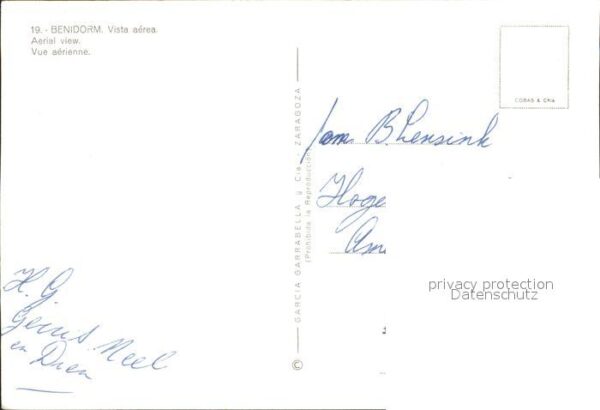 19.- BENIDORM. Vista aérea.
Aerial view.
Vue aérienne.
COBAS & Cnia
GARCIA GARRABELLA y Cía. - ZARAGOZA
(Prohibida la Reproducción)
©
Fam. B. Lensink
Hoge
Am
privacy protection
Datenschutz
H. G.
Neel
en